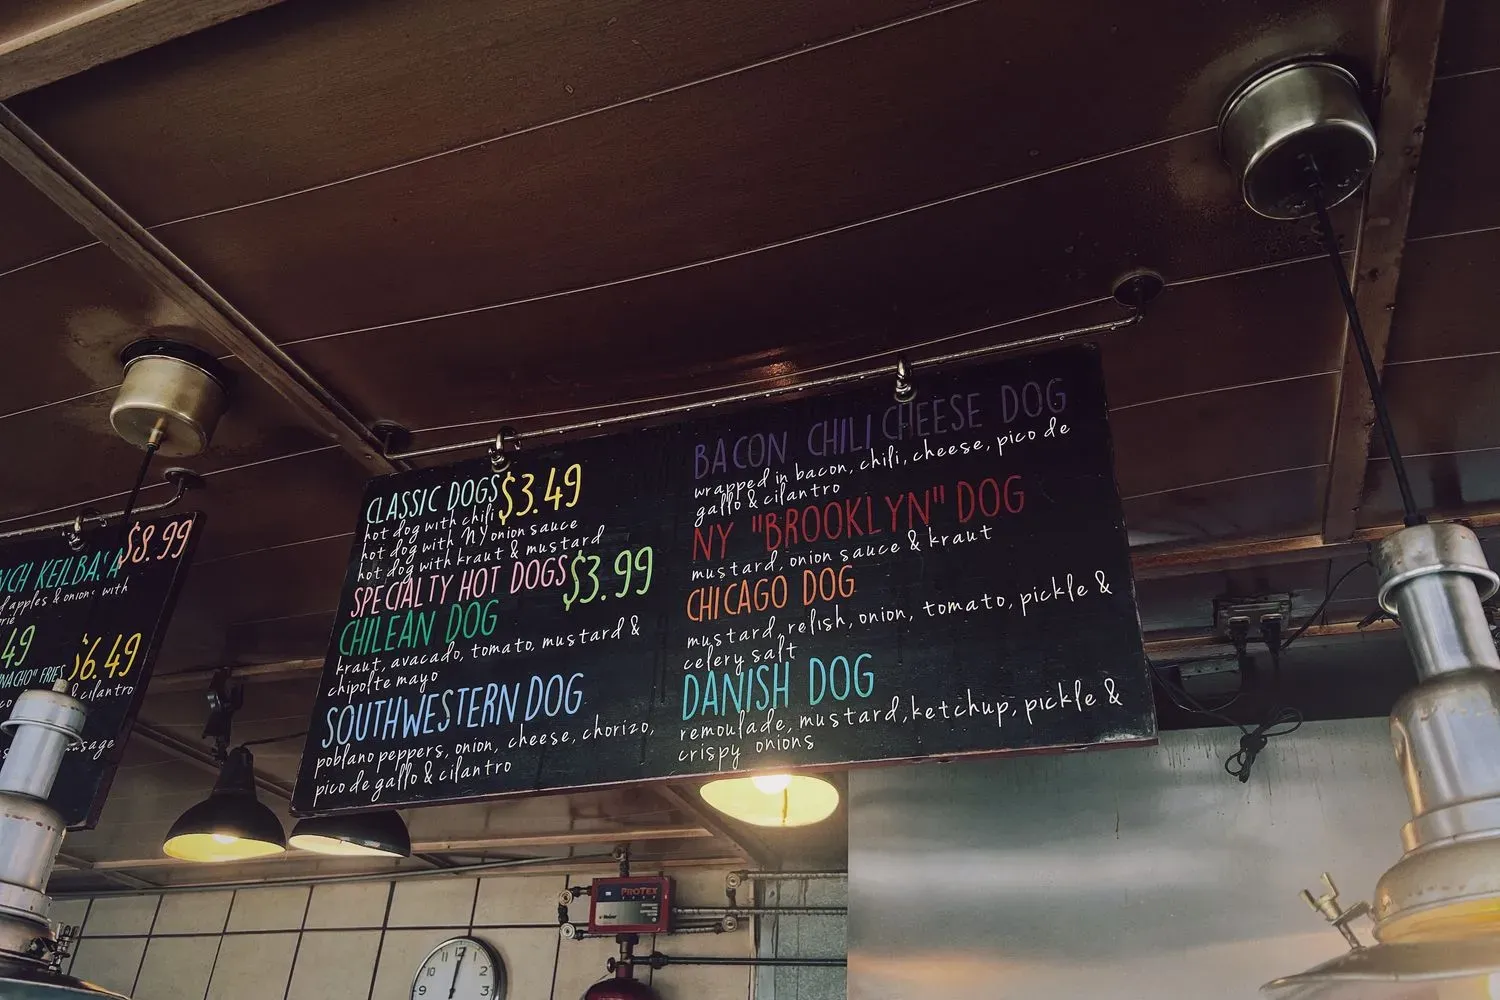 KEILBASA $8.99
apples & onions with
49
"NACHO" FRIES $6.49
& cilantro
CLASSIC DOGS $3.49
hot dog with chili
hot dog with NY onion sauce
hot dog with kraut & mustard
SPECIALTY HOT DOGS $3.99
CHILEAN DOG
kraut, avacado, tomato, mustard &
chipolte mayo
SOUTHWESTERN DOG
poblano peppers, onion, cheese, chorizo,
pico de gallo & cilantro
BACON CHILI CHEESE DOG
wrapped in bacon, chili, cheese, pico de
gallo & cilantro
NY "BROOKLYN" DOG
mustard, onion sauce & kraut
CHICAGO DOG
mustard, relish, onion, tomato, pickle &
celery salt
DANISH DOG
remoulade, mustard, ketchup, pickle &
crispy onions
PROTEX
11 12 1
10
9